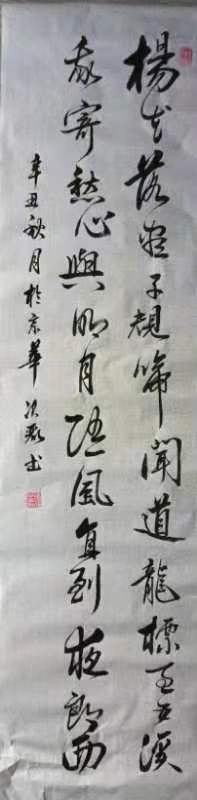 楊花落盡子規啼聞道龍標過五溪
我寄愁心與明月随風直到夜郎西
辛丑秋月於京華